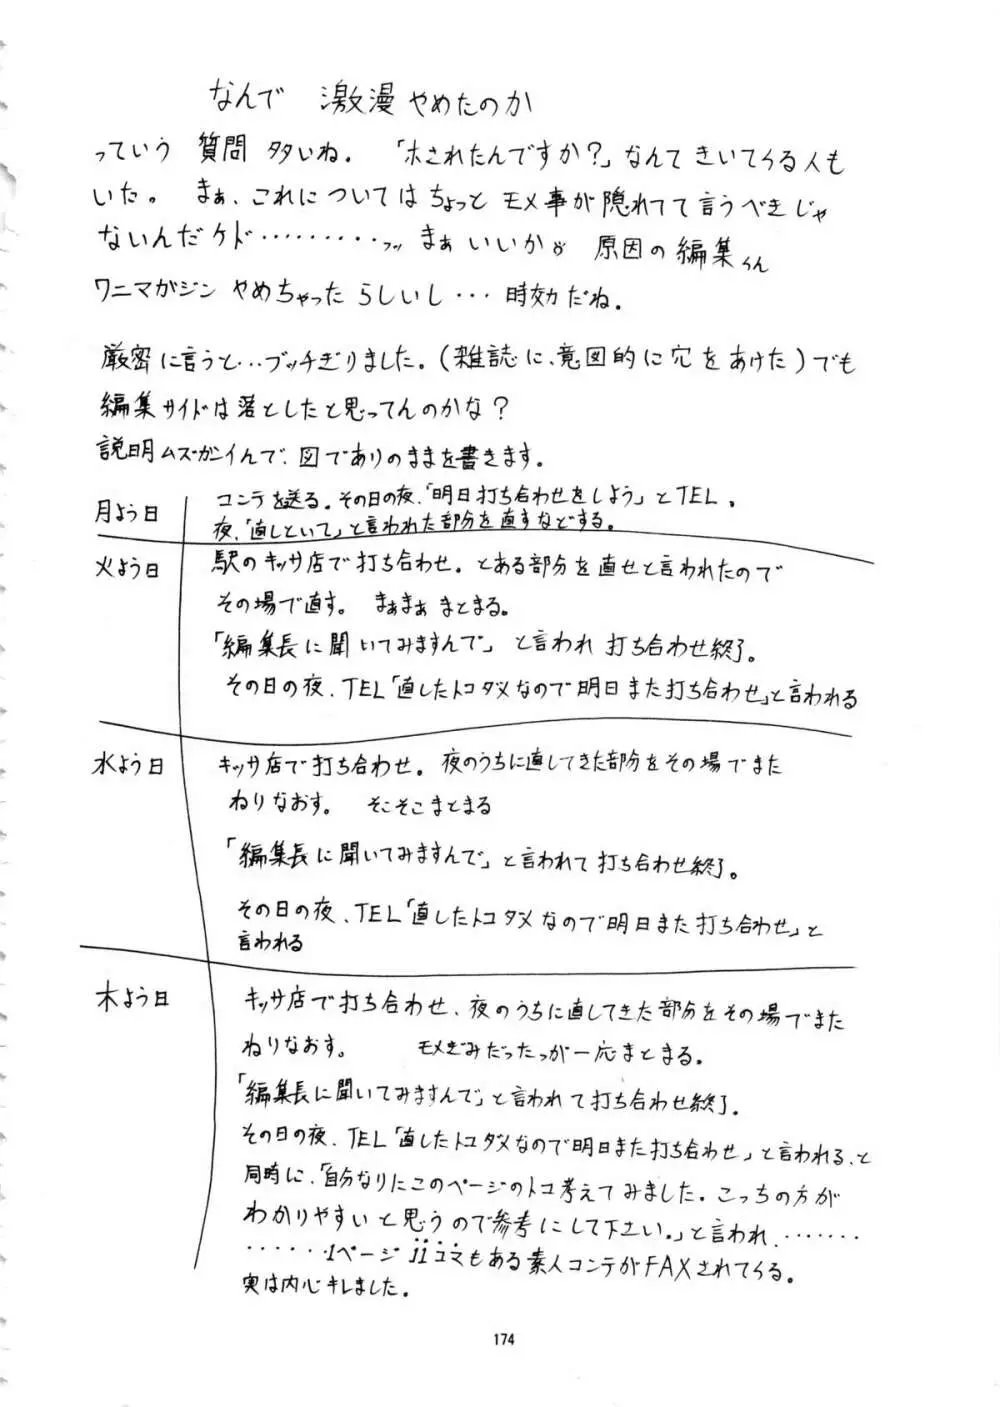 なんで 激漫 やめたのか
っていう 質問 多いね。「ホされたんですか?」なんてきいてくる人も
いた。 まぁ、これについてはちょっと モメ事が隠れてて言うべきじゃ
ないんだケド‥‥‥‥‥フッ まぁいいかぉ 原因の編集くん
ワニマガジン やめちゃった らしいし‥‥時効だね。
厳密に言うと‥‥ブッチぎりました。(雑誌に、意図的に穴をあけた)でも
編集サイドは落としたと思ってんのかな?
説明ムズガシイんで、図でありのままを書きます。
月よう日 コンテを送る。その日の夜、「明日打ち合わせをしよう」とTEL。
夜、「直しといて」と言われた部分を直すなどする。
火よう日 駅のキッサ店で打ち合わせ。とある部分を直せと言われたので
その場で直す。 まぁまぁ まとまる。
「編集長に聞いてみますんで」 と言われ 打ち合わせ終了。
その日の夜、TEL「直したトコダメなので明日また打ち合わせ」と言われる
水よう日 キッサ店で打ち合わせ。夜のうちに直してきた部分をその場でまた
ねりなおす。 そこそこまとまる
「編集長に聞いてみますんで」と言われて打ち合わせ終了。
その日の夜、TEL「直したトコダメなので明日また打ち合わせ」と
言われる
木よう日 キッサ店で打ち合わせ、夜のうちに直してきた部分をその場でまた
ねりなおす。 モメぎみだったっが一応まとまる。
「編集長に聞いてみますんで」と言われて打ち合わせ終了。
その日の夜、TEL「直したトコダメなので明日また打ち合わせ」と言われる、と
同時に、「自分なりにこのページのトコ考えてみました。こっちの方が
わかりやすいと思うので参考にして下さい。」と言われ、‥‥‥‥
‥‥‥1ページ11コマもある素人コンテがFAXされてくる。
実は内心キレました。
174